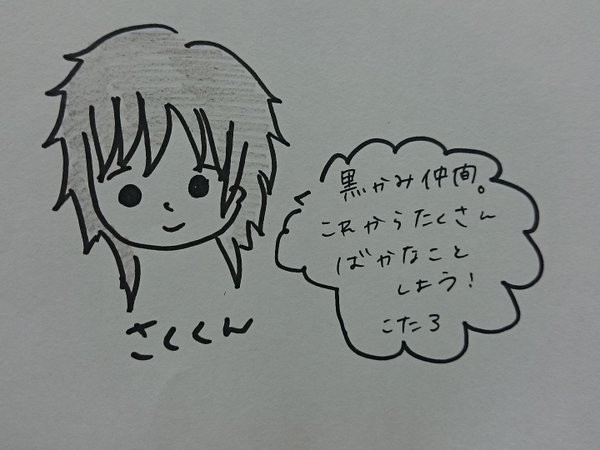 黒かみ仲間。
これからたくさん
ばかなこと
しよう!
こた3
さくくん